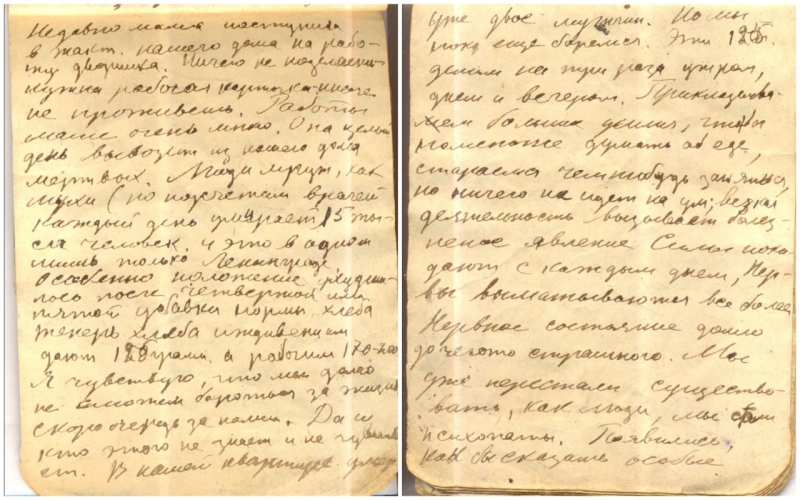 Недавно мама поступила
в жакт. нашего дома на рабо-
ту дворника. Ничего не поделаешь
нужна рабочая карточка иначе
не проживешь. Работы
маме очень много. Она целый
день вывозит из нашего дома
мертвых. Люди мрут, как
мухи (по подсчетам врачей
каждый день умирает 15 ты-
сяч человек. и это в одном
лишь только Ленинграде
Особенно положение ухудши-
лось после четвертой или
пятой убавки нормы хлеба
теперь хлеба иждивенцам
дают 125 грамм. а рабочим
Я чувствую, что мы долго
не сможем бороться за жизнь
скоро очередь за нами. Да и
кто этого не знает и не чувству
ет. В нашей квартире умер
уже двое мужчин. Но мы
пока еще боремся. Эти 125г.
делим на три раза утром,
днем и вечером. Прикладыва
ем больших усилия, чтобы
поменьше думать об еде,
стараемся чем нибудь заняться,
но ничего на идет на ум; всякая
деятельность вызывает болез-
неное явление Силы поки-
дают с каждым днем, Нер-
вы выматываются все более
Нервное состояние дошло
до чегото страшного. Мы
уже перестали существо-
вать, как люди, мы
психопаты. Появились,
как бы сказать особые